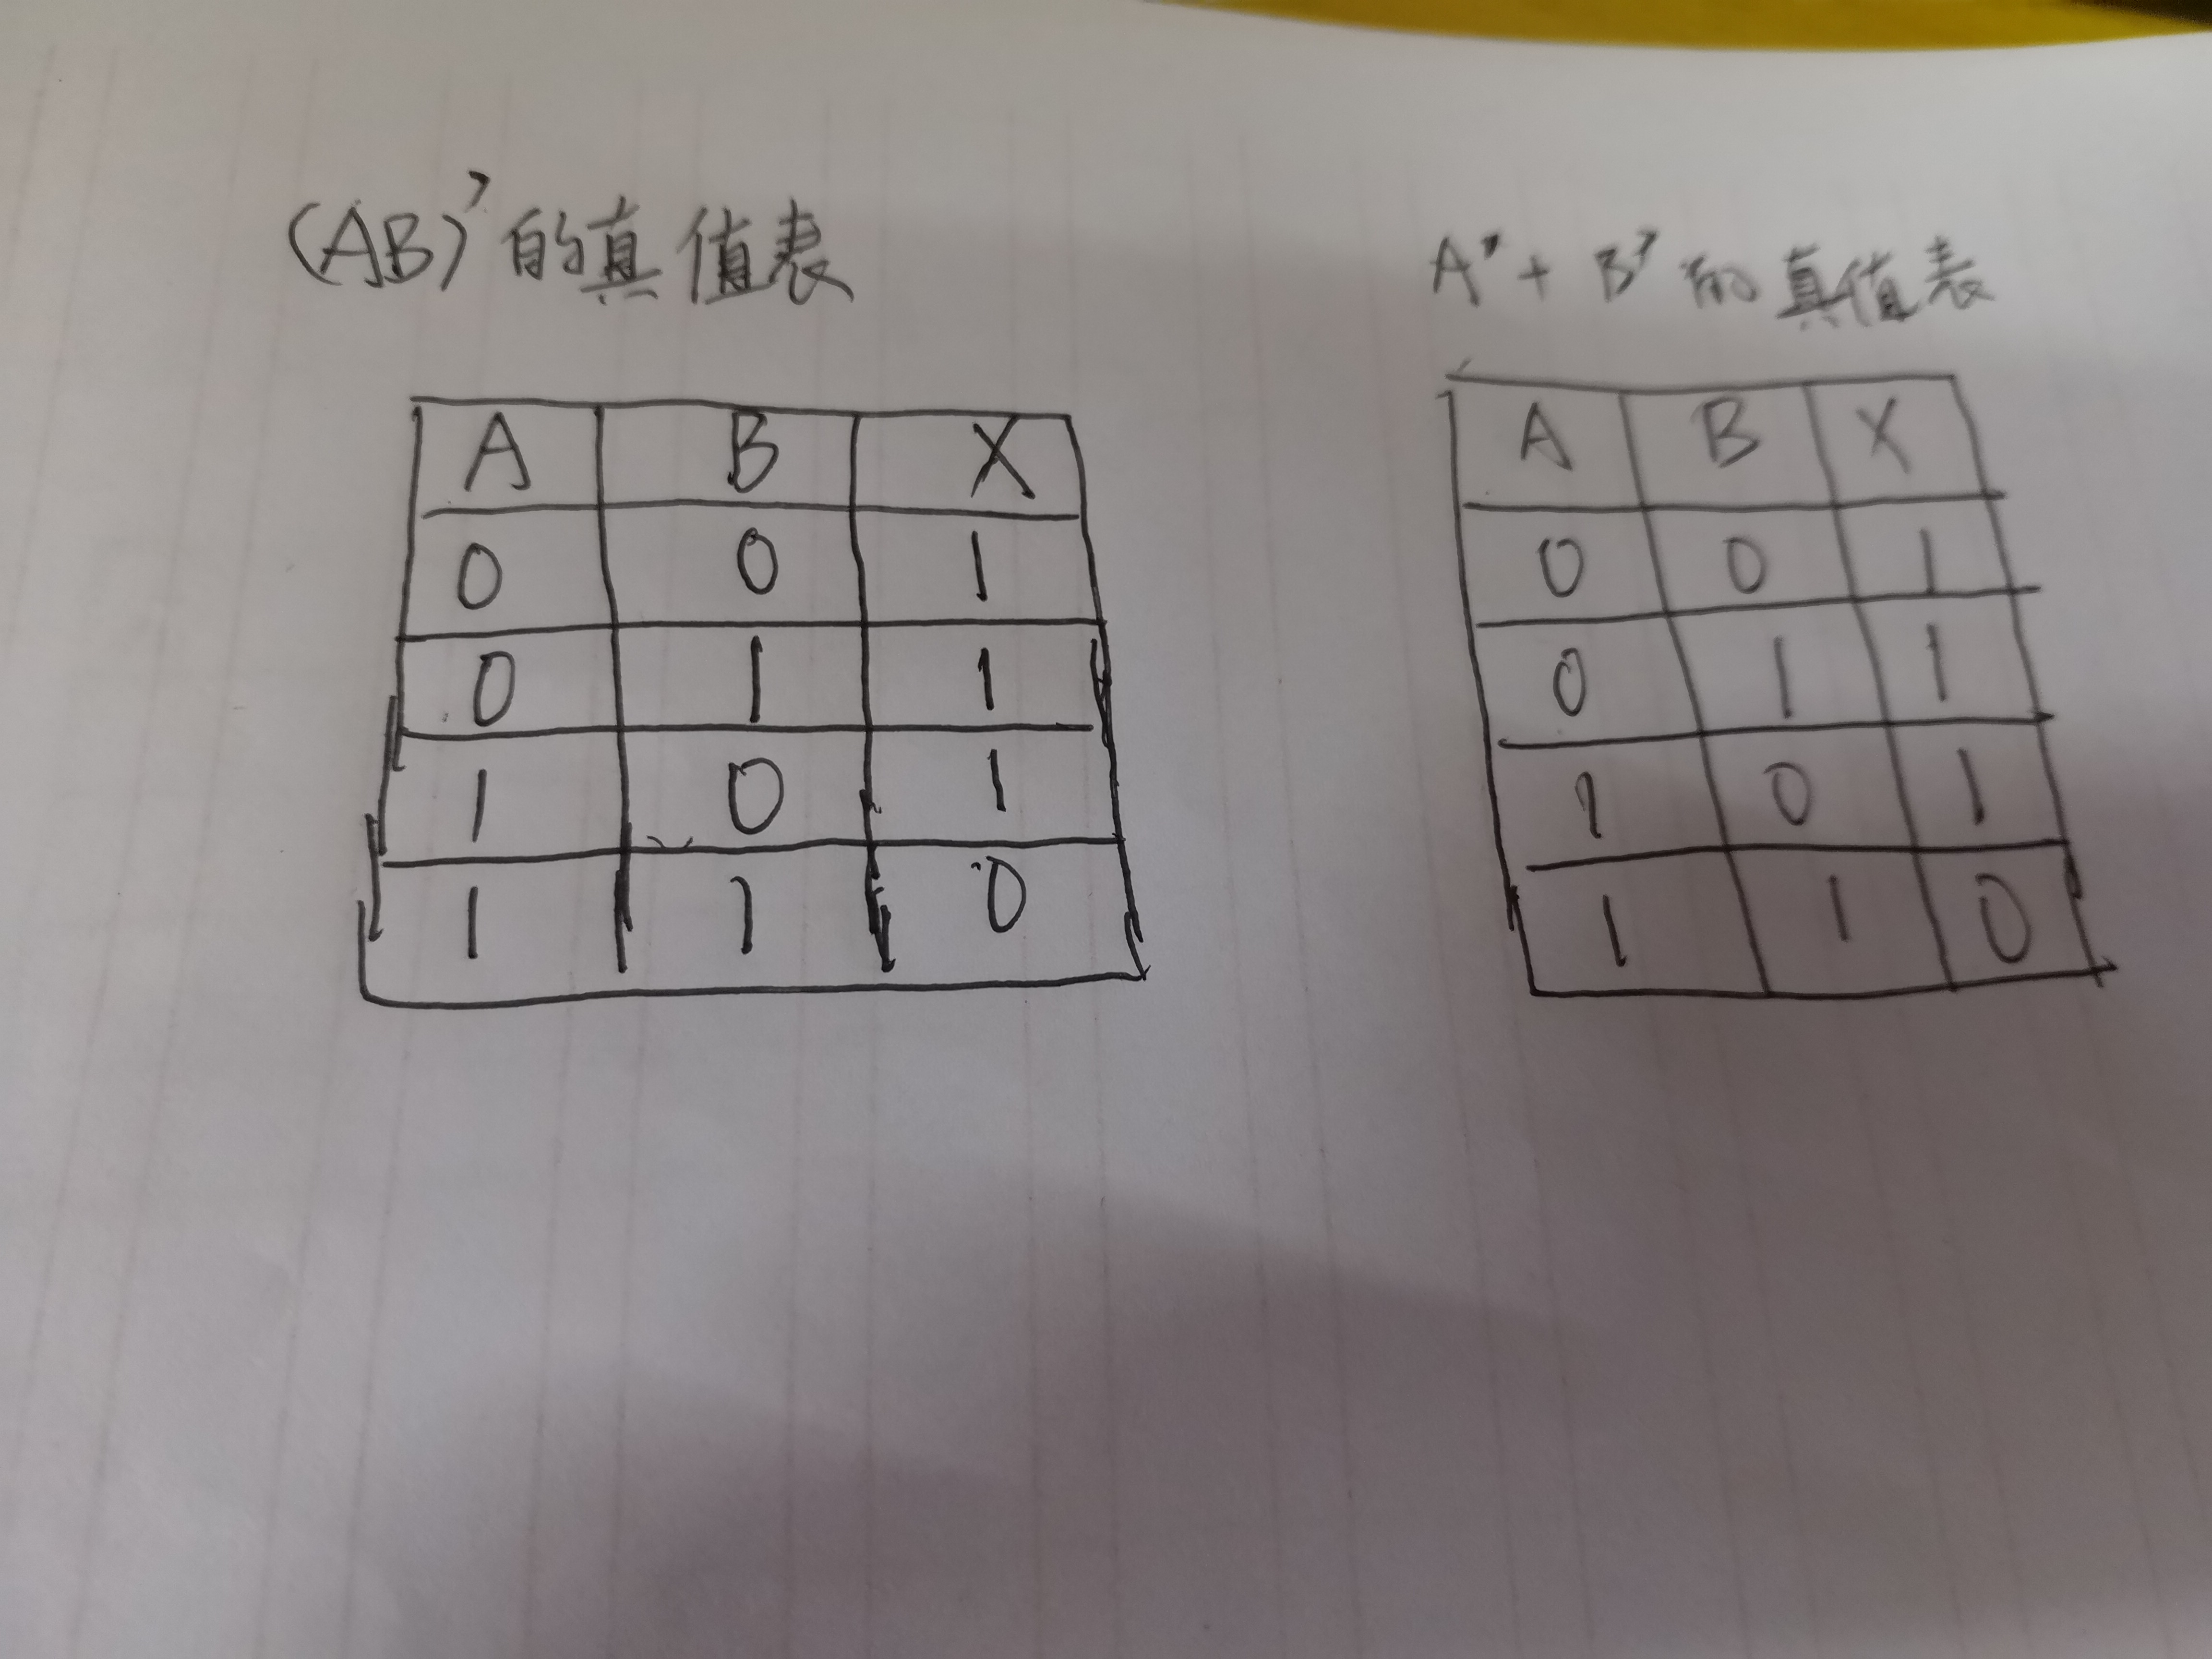 (AB)'的真值表
A B X
0 0 1
0 1 1
1 0 1
1 1 0
A'+B'的真值表
A B X
0 0 1
0 1 1
1 0 1
1 1 0